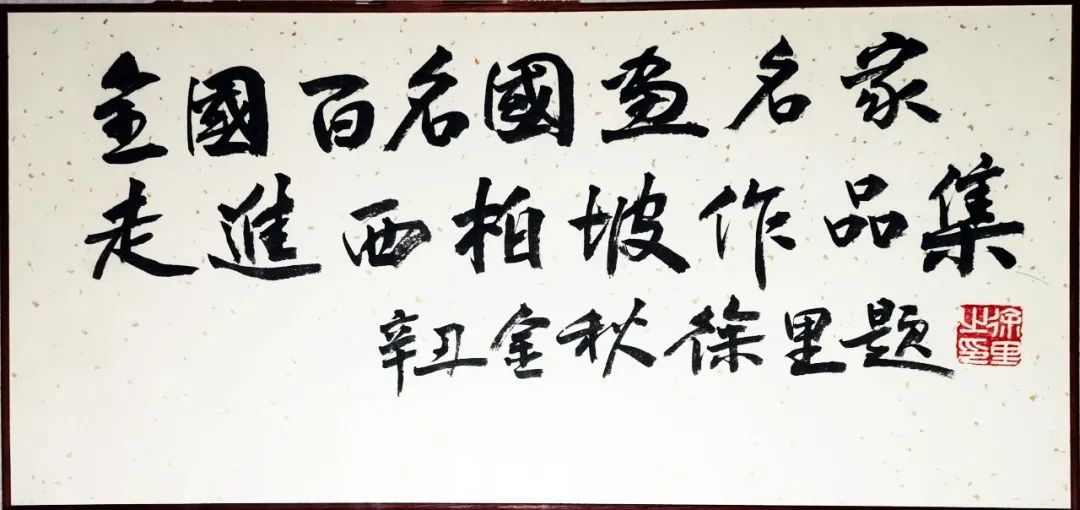 全國百名國畫名家
走進西柏坡作品集
辛丑金秋徐里題
徐里之印